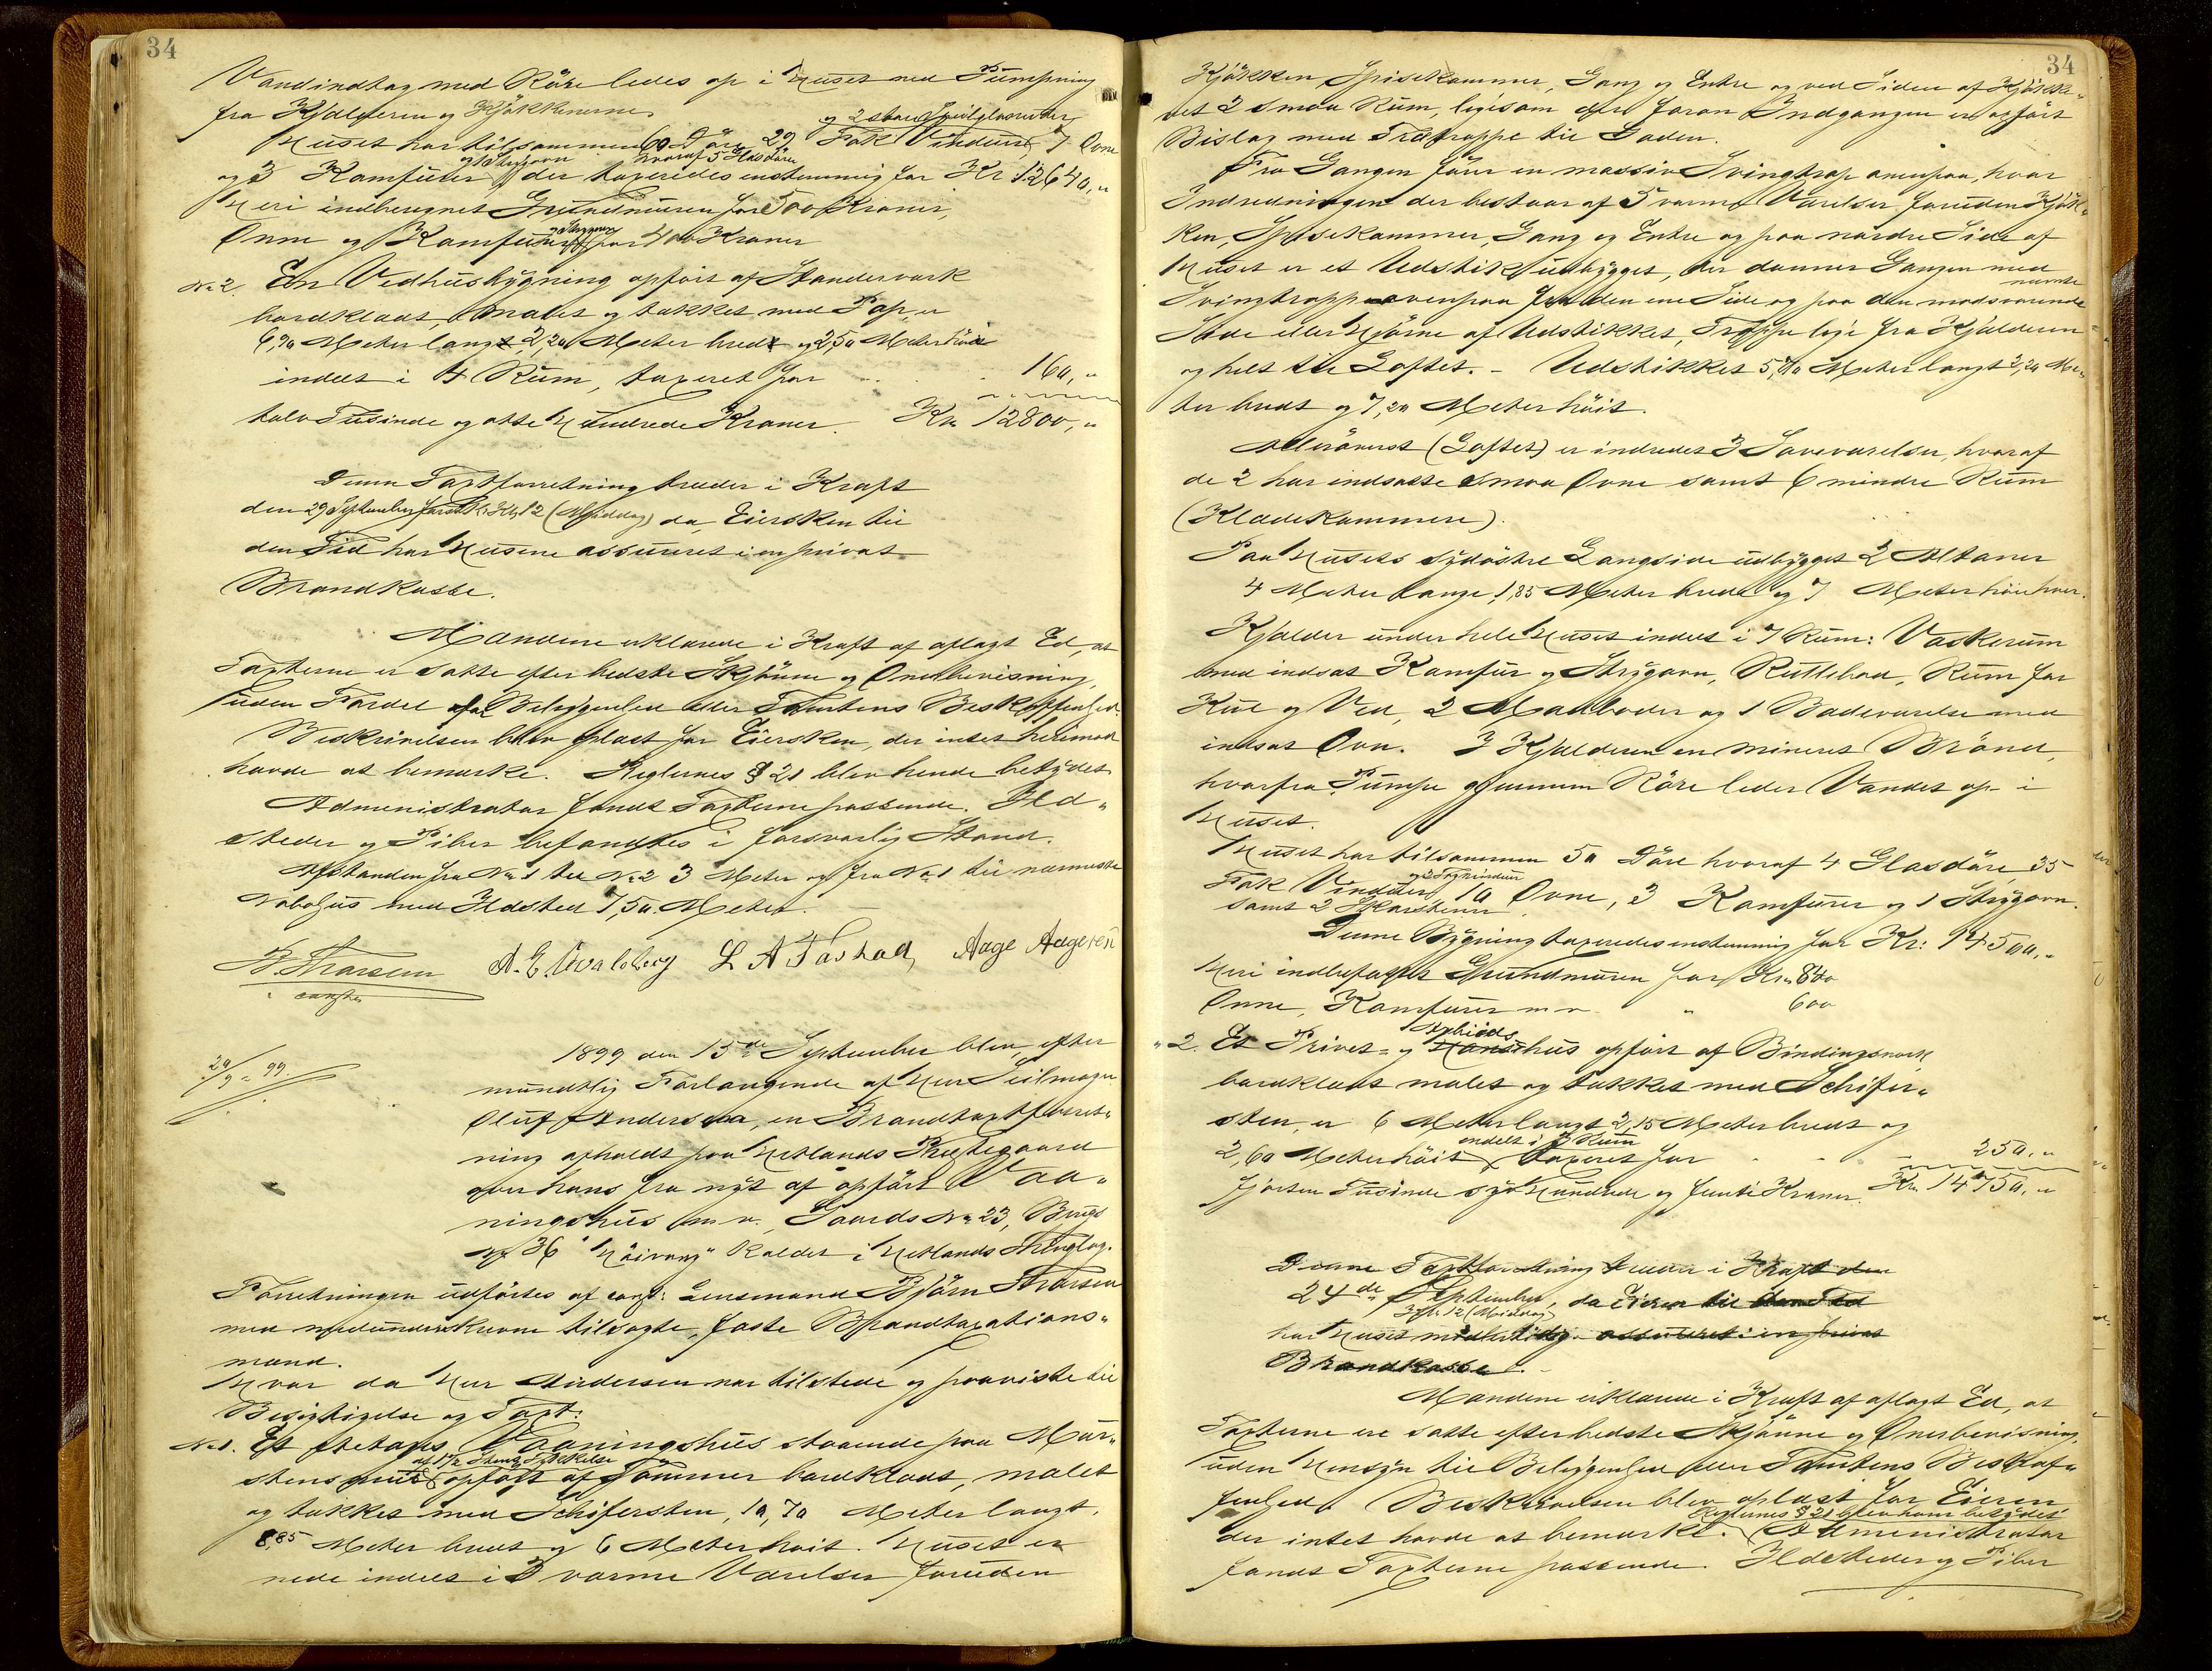 34
Vandindtag med Röre ledes op i Huset med Pumpning
fra Kjælderen og Kjøkkenerne.
Huset har tilsammen 60 Döre 29 Fak Vinduer, 7 Ovne
og 2 store Speilglasruder
og 3 Komfurer der taxeredes enstemmig for Kr. 12640,"
og Strygeovn hvoraf 5 Glasdöre
Heri indberegnet Grundmuren for 500 Kroner,
Ovne og Komfurer for 400 Kroner
og Strygeovn
No 2. En Vedhusbygning opfört af Standerværk
bordklædt, malet og tækket med Pap, er
6,90 Meter lang 2,20 Meter bred og 2,50 Meter höit
indelt i 4 Rum, taxeret for 160,"
tolv Tusinde og otte Hundrede Kroner. Kr. 12800,"
Denne Taxtforretning træder i Kraft
den 29 September førstk. Kl. 12 (Middag) da Eiersken til
den Tid har Husene assureret i en privat
Brandkasse.
Mændene erklærede i Kraft af aflagt Ed, at
Taxterne er satte efter bedste Skjönne og Overbevisning,
uden Fordel af Beliggenhed eller Tomtens Beskaffenhed.
Beskrivelsen blev oplæst for Eiersken, der intet herimod
havde at bemærke. Reglernes § 21 blev hende betydet
Administrator fandt Taxterne passende. Ild-
steder og Piber befandtes i forsvarlig Stand.
Afstanden fra No 1 til No 2 3 Meter og fra No 1 til nærmeste
Nabohus med Ildsted 7,50 Meter.
B. Thorsen A. E. L. A. Tastad, Aage Aagesen
const.
20/9-99.
1899 den 15de September blev, efter
mundtlig Forlangende af Herr Seilmager
Oluf Andersen, en Brandtaxtforret-
ning afholdt paa Hetlands Prestegaard
over hans fra nyt af opfört Vaa-
ningshus m. v. Gaards No 23, Brugs
No 36 "Höivang" kaldet i Hetlands Thinglag.
Forretningen udförtes af const: Lensmand Björn Thorsen
med medunderskrevne tilsagte, faste Brandtaxations-
mænd.
Hvor da Herr Andersen var tilstede og paaviste til
Besigtigelse og Taxt:
No 1. Et etetages Vaaningshus staaende paa Mur-
af 1 1/2 Stens Tykkelse
stensmur opfört af Tömmer bordklædt, malet
og tækket med Schifersten, 10,70 Meter langt,
8,85 Meter bredt og 6 Meter höit. Huset er
nede indelt i 3 varme Værelser foruden
34
Kjökken Spisekammer, Gang og Entre og ved Siden af Kjökke-
net 2 smaa Rum, ligesom der foran Indgangen er opfört
Bislag med Trætrappe til Gaden.
Fra Gangen förer en massiv Svingtrap ovenpaa, hvor
Indredningen der bestaar af 5 varme Værelser foruden Kjök-
ken, Spisekammer, Gang og Entre og paa nordre Side af
Huset er et Udstik udbygget, der danner Gangen med
nævnte
Svingtrappe ovenpaa fra den ene Side og paa den modsvarende
Side eller Hjörne af Udstikket, Trappe lige fra Kjælderen
og helt til Loftet. - Udstikket 5,40 Meter langt 2,20 Me-
ter bredt og 7,20 Meter höit.
Alleröverst (Loftet) er indredet 3 Soveværelser, hvoraf
de 2 har indsatte smaa Ovne samt 6 mindre Rum
(Klædekammere).
Paa Husets sydöstre Langside udbygget 2 Altaner
4 Meter lange, 1,85 Meter brede og 7 Meter höie hver.
Kjælder under hele Huset indelt i 7 Rum: Vaskerum
med indsat Komfur og Strygeovn, Rullebod, Rum for
Kul og Ved, 2 Madboder og 1 Badeværelse med
indsat Ovn. I Kjælderen en mineret Brönd,
hvorfra Pumpe gjennem Röre leder Vandet op i
Huset.
Huset har tilsammen 50 Döre hvoraf 4 Glasdöre, 35
Fak Vinduer, 10 Ovne, 3 Komfurer og 1 Strygeovn.
samt 2
Denne Bygning taxeredes enstemmig for Kr: 14500,"
Heri indbefattet Grundmuren for Kr. 840
Ovne, Komfurer m v. " 600
" 2. Et Privet- og hus opfört af Bindingsverk
bordklædt malet og tækket med Schifer-
sten, er 6 Meter langt 2,15 Meter bredt og
indelt i 3 Rum
2,60 Meter höit, taxeret for 250,"
fjorten Tusinde syv Hundrede og femti Kroner. Kr. 14750,"
Denne Taxtforretning træder i Kraft den
24de September, da Eieren til den Tid
Kl. 12 (Middag)
har Huset midlertidig assureret i en privat
Brandkasse.
Mændene erklærede i Kraft af aflagt Ed, at
Taxterne ere satte efter bedste Skjönne og Overbevisning,
uden Hensyn til Beliggenhed eller Tomtens Beskaf-
fenhed. Beskrivelsen blev oplæst for Eieren
Reglernes § 21 blev ham betydet
der intet havde at bemærke. Administrator
fandt Taxterne passende. Ildsteder og Piber